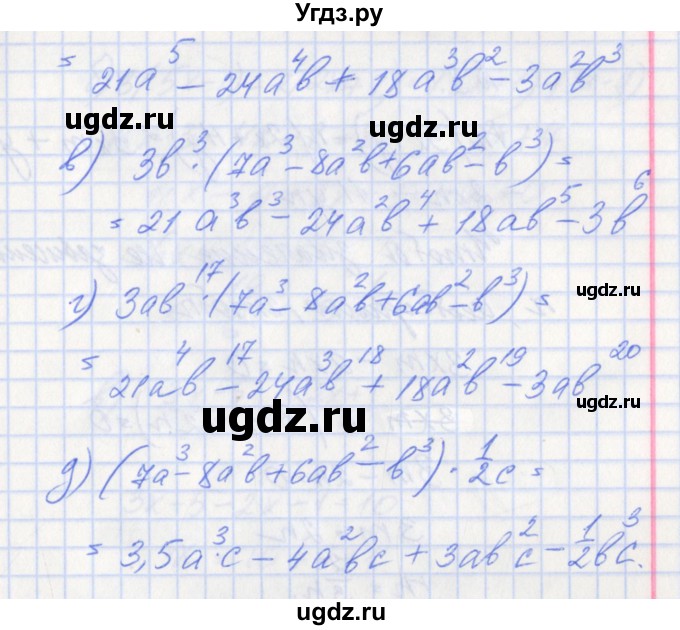 Угдз.ру
= 21a⁵ − 24a⁴b + 18a³b² − 3a²b³
ugdz.ru
ugdz.ru
в) 3b³·(7a³ − 8a²b + 6ab² − b³) =
= 21a³b³ − 24a²b⁴ + 18ab⁵ − 3b⁶
г) 3ab¹⁷·(7a³ − 8a²b + 6ab² − b³) =
ugdz.ru
= 21a⁴b¹⁷ − 24a³b¹⁸ + 18a²b¹⁹ − 3ab²⁰
ugdz.ru
ugdz.ru
д) (7a³ − 8a²b + 6ab² − b³)·½c =
= 3,5a³·c − 4a²bc + 3abc² − ½bc³.
ugdz.ru
ugdz.ru